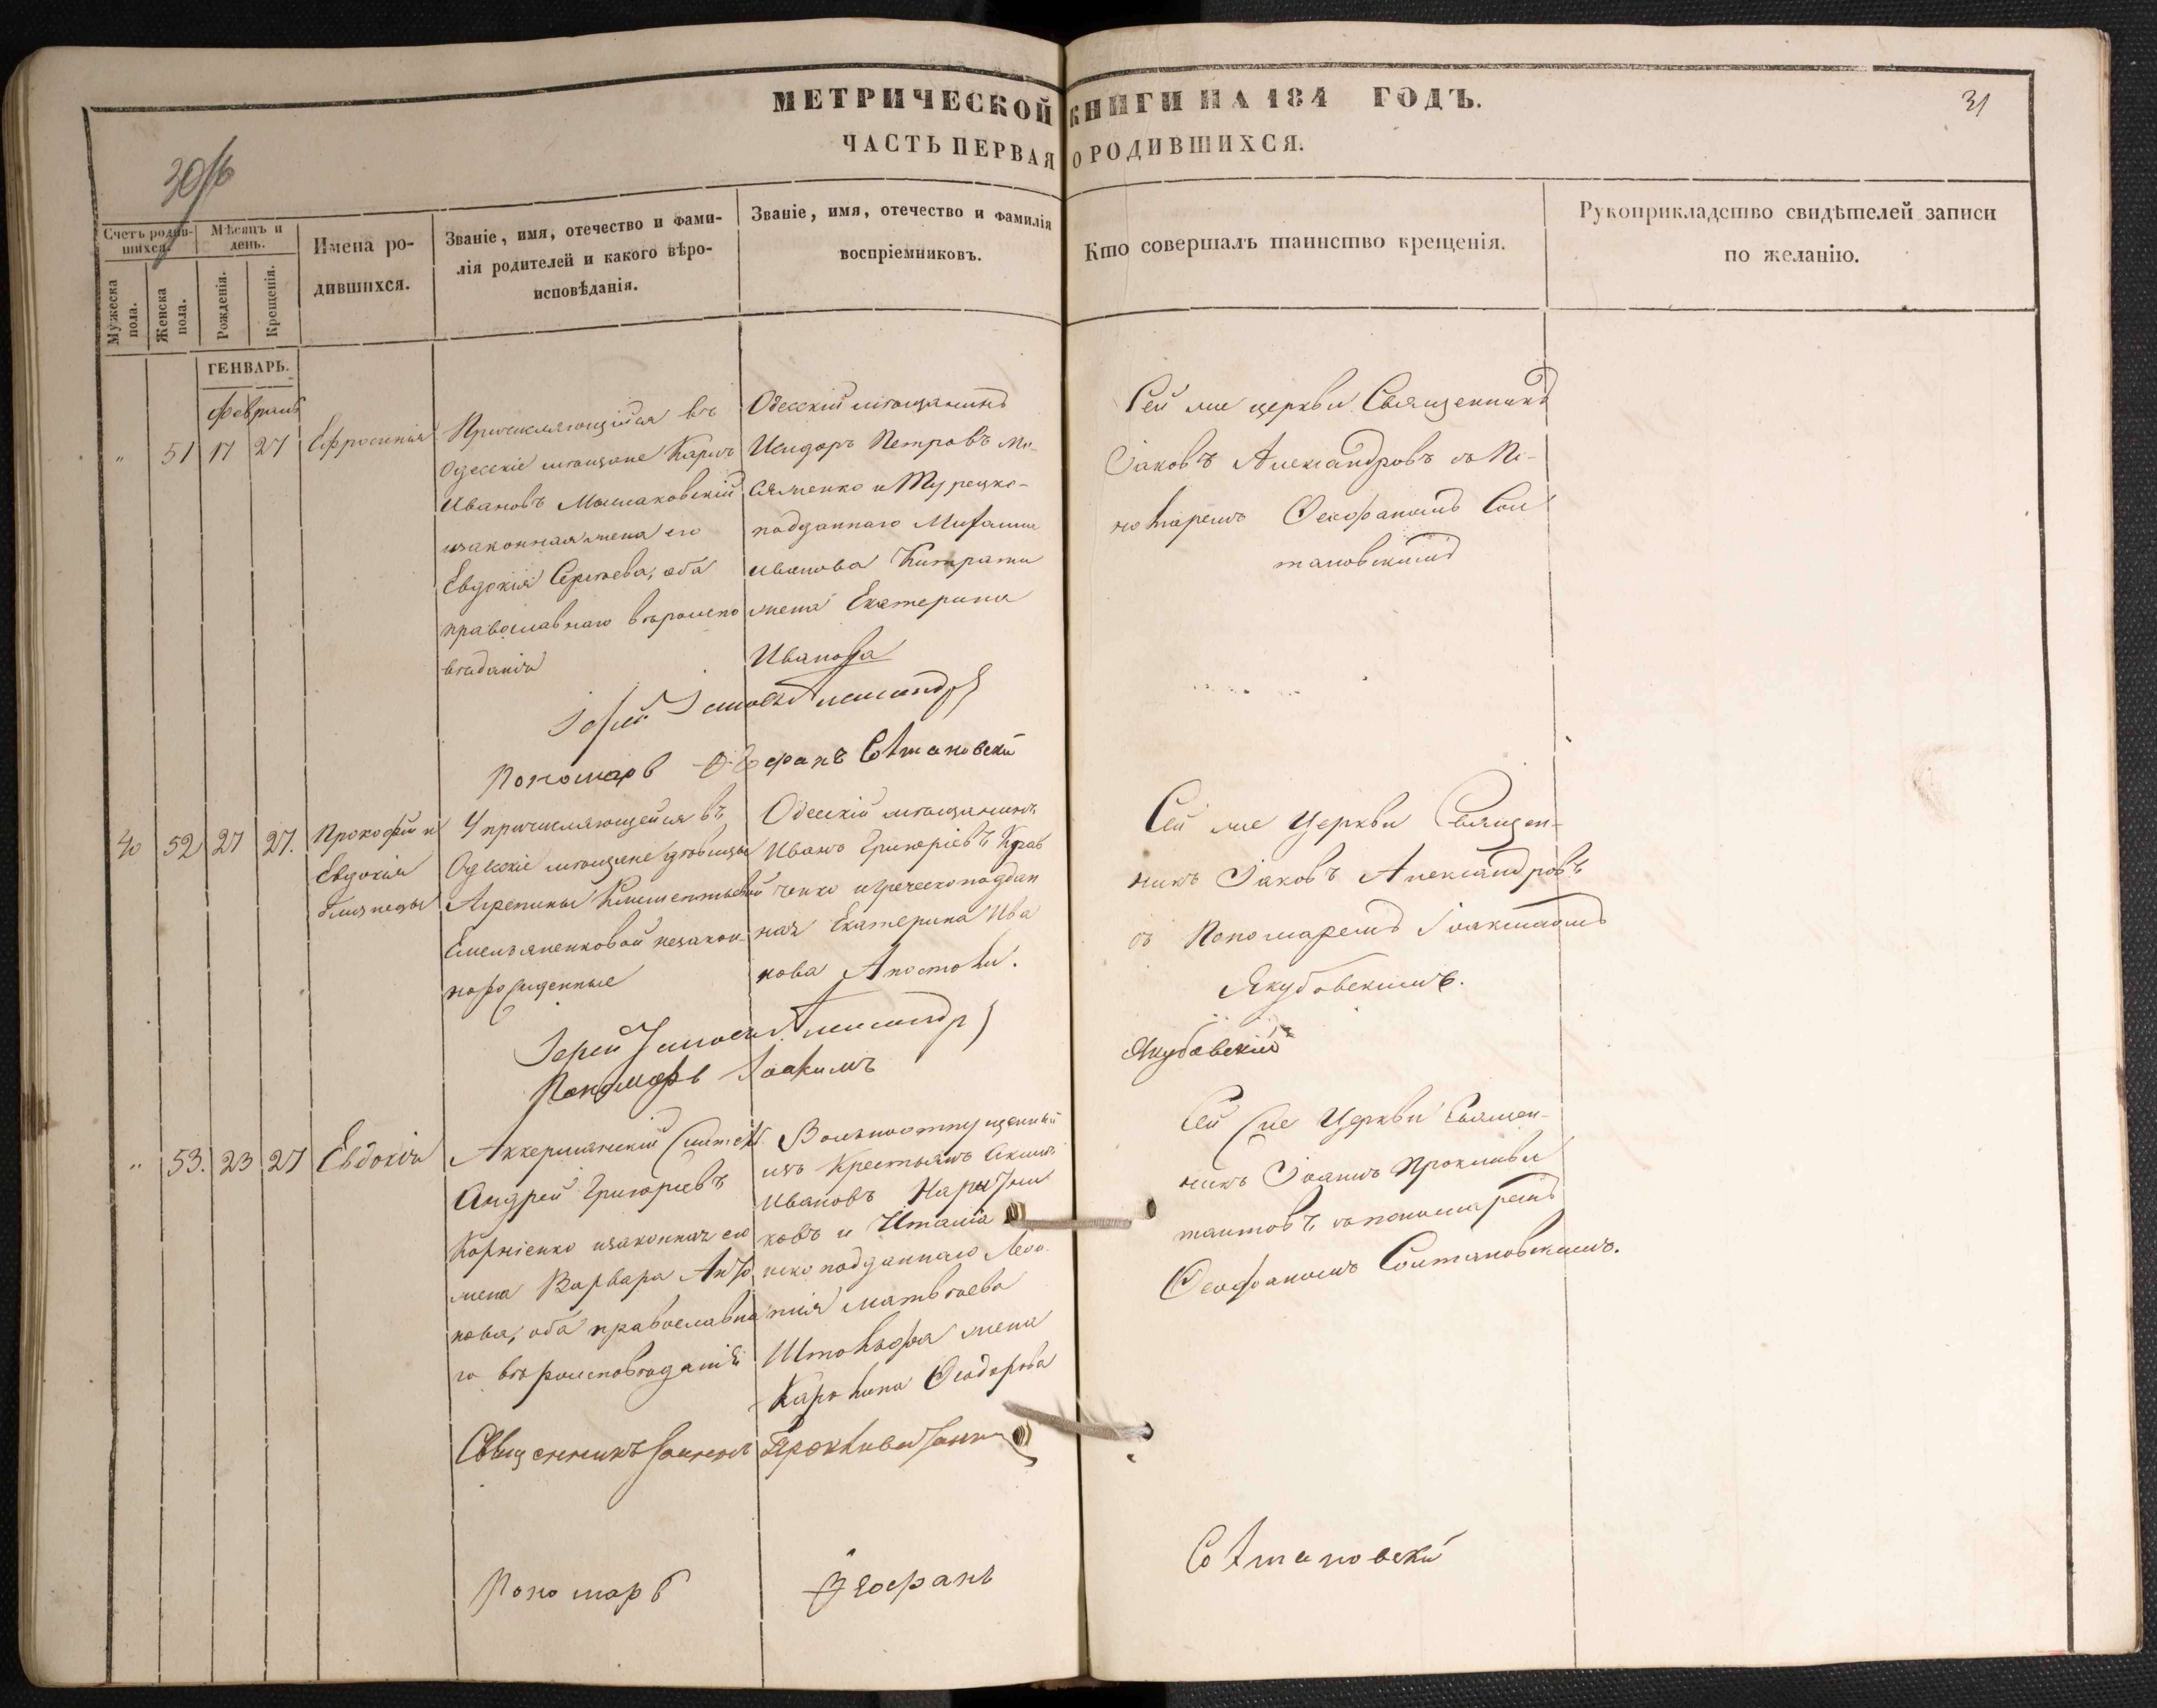 МЕТРИЧЕСКОЙ КНИГИ НА 184 ГОДЪ.
31
ЧАСТЬ ПЕРВАЯ О РОДИВШИХСЯ.
Счетъ родившихся.
Мѣсяцъ и день.
Мужеска пола.
Женска пола.
Рожденія.
Крещенія.
Имена ро-
дившихся.
Званіе, имя, отечество и фами-
лія родителей и какого вѣро-
исповѣданія.
Званіе, имя, отечество и фамилія
воспріемниковъ.
Кто совершалъ таинство крещенія.
Рукоприкладство свидѣтелей записи
по желанію.
ГЕНВАРЬ.
Февраль
" 51 17 27 Ефросинія
Причисляющійся въ
Одесскіе мѣщане Карпъ
Ивановъ
изаконная жена его
Евдокія Сергѣева, оба
православнаго вѣроиспо
вѣданія
Одесскій мѣщанинъ
Исидоръ Петровъ Ми-
сяменко и Турецко-
подданнаго Михаила
Иванова
жена Екатерина
Иванова
Сей же церкви Священникъ
Іаковъ Александровъ съ По-
номаремъ Ѳеофаномъ Сол
тановскимъ
Іерей Іаковъ Александр
Пономарь Ѳеофанъ Солтановскій
40 52 27 27. Прокофій и
Евдокія
близнецы
У причисляющейся въ
Одесскіе мѣщане дѣвицы
Агрепины Климентьевой
Емельяненковой незакон-
норожденные
Одесскій мѣщанинъ
Иванъ Григоріевъ Крав
ченко и греческоподдан
ная Екатерина Ива
нова Апостоли.
Сей же Церкви Священ-
никъ Іаковъ Александровъ
съ Пономаремъ Іоакимомъ
Якубовскимъ.
Іерей Іаковъ Александр
Пономарь Іоакимъ
Якубовскій
" 53. 23 27 Евдокія
Аккерманскій
Андрей Григорьевъ
Корніенко изаконная его
жена Варвара Анто
нова, оба православна
го вѣроисповѣданія
Вольноотпущенный
изъ Крестьянъ Акимъ
Ивановъ
ковъ и Италіа
нско подданнаго Лео.
нтія Матвѣева
жена
Каролина Ѳеодорова
Сей же Церкви Священ-
никъ Іоаннъ Прокливи
тантовъ съ пономаремъ
Ѳеофаномъ Солтановскимъ.
Священникъ Іоаннъ
Пономарь Ѳеофанъ Солтановскій